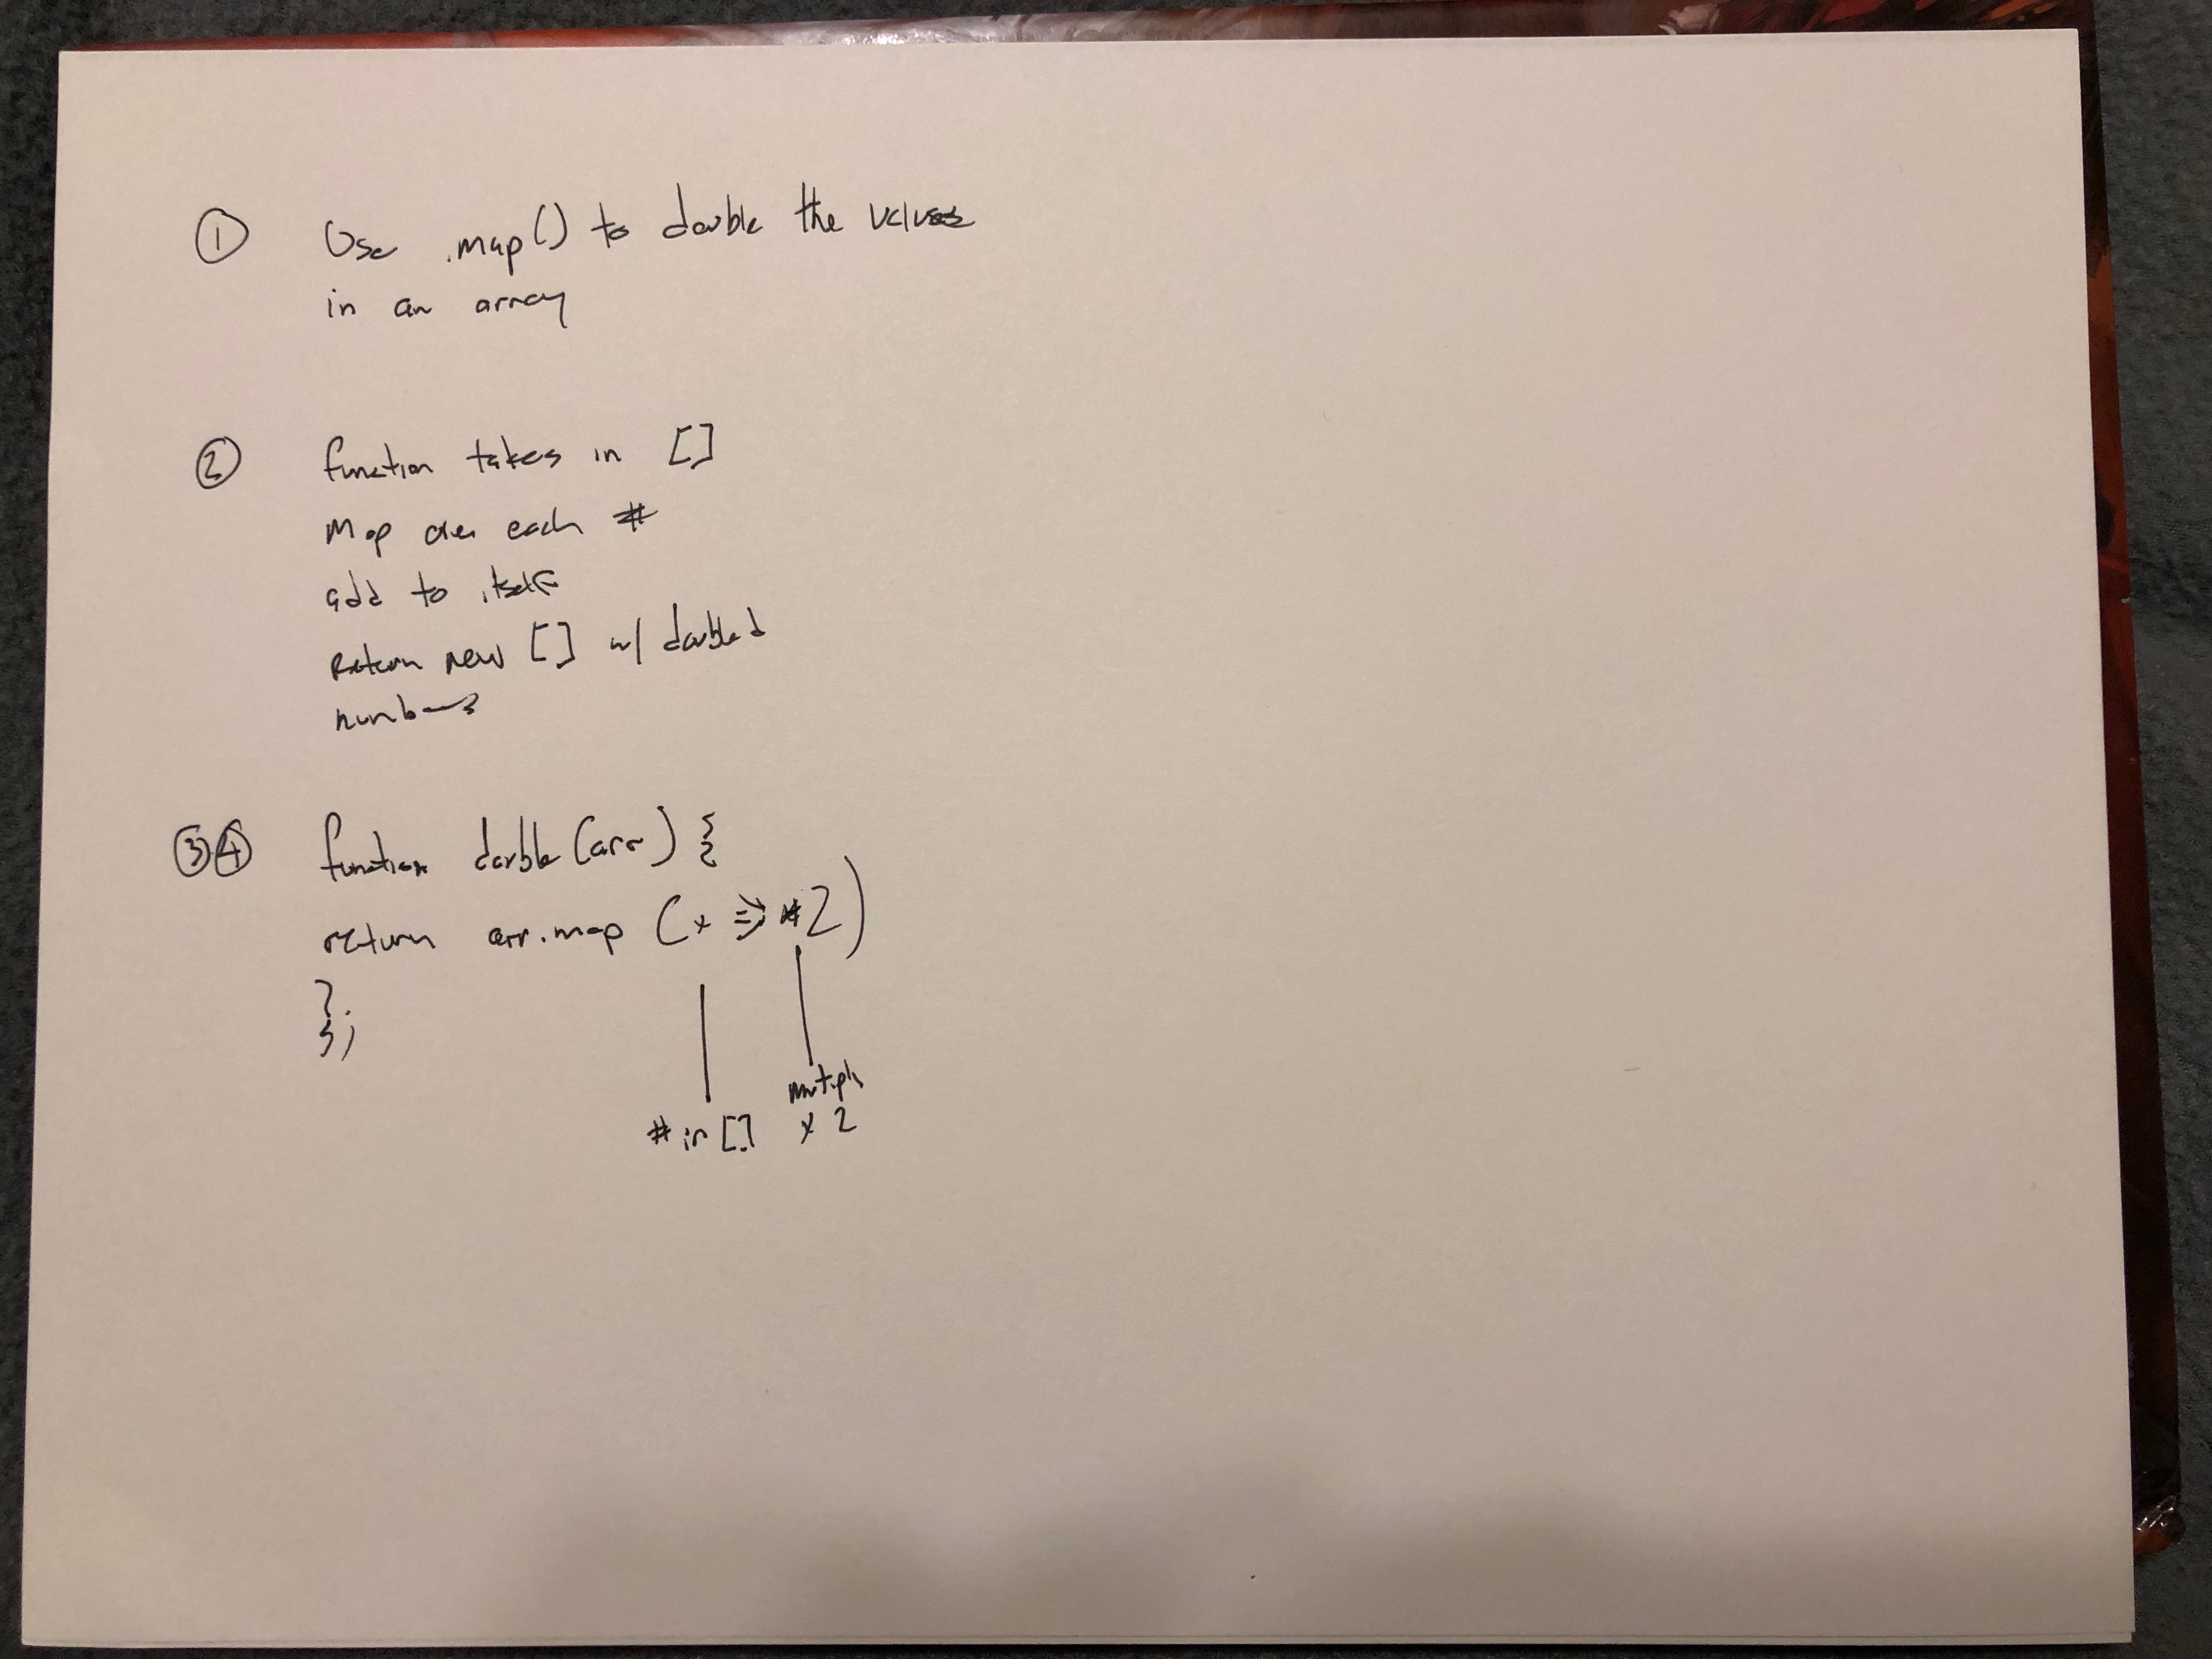 ① Use .map() to double the values
in an array
② function takes in []
Map over each #
add to itself
return new [] w/ doubled
numbers
③④ function double(arr) {
return arr.map (x => *2)
};
multiply
# in [] x 2